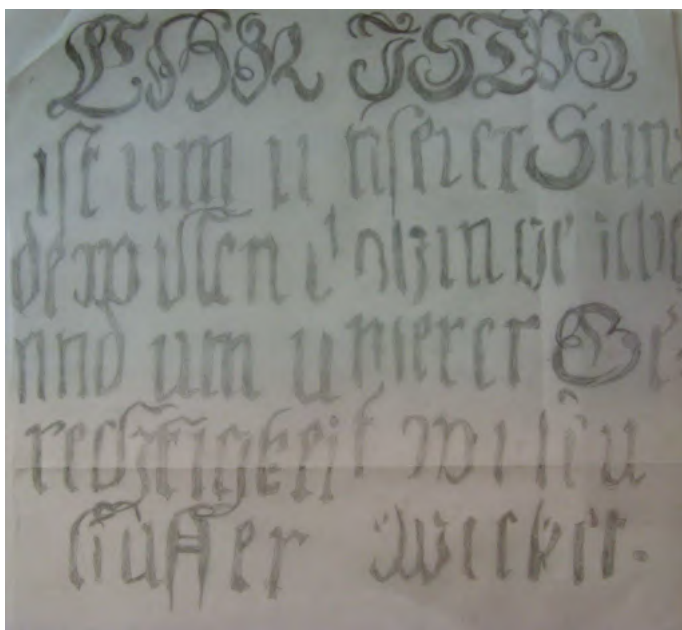 CHRISTVS
ist um unserer Sün-
den willen dahin gegeben
und um unserer Ge-
rechtigkeit willen
auffer wecket.